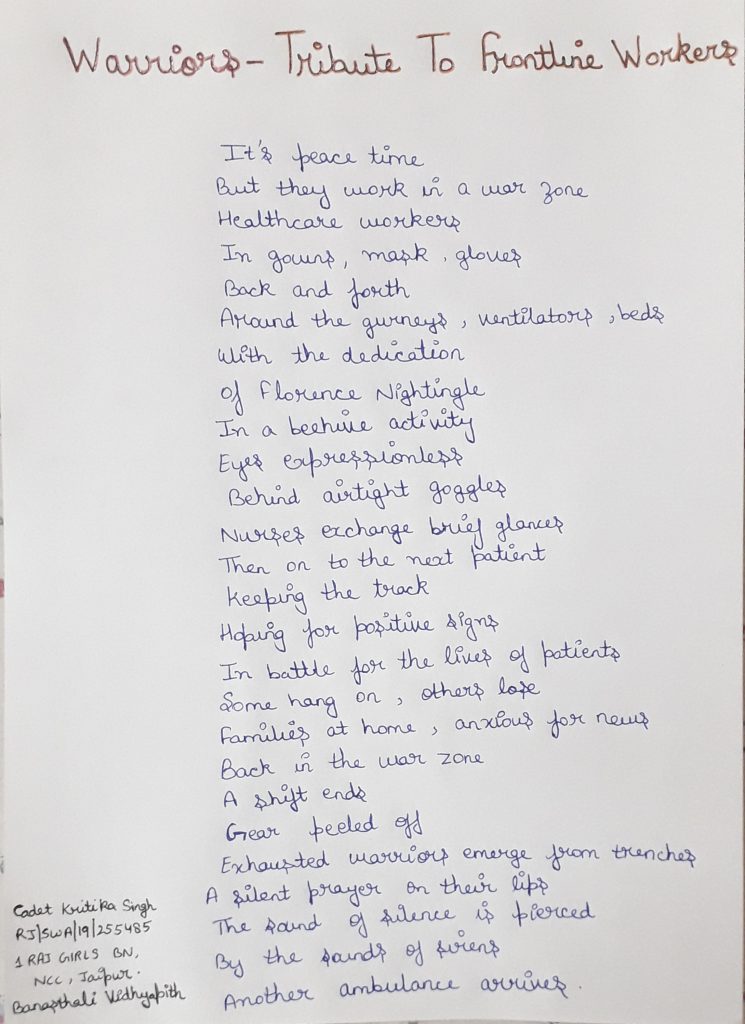 Warriors - Tribute To Frontline Workers
It's peace time
But they work in a war zone
Healthcare workers
In gowns, mask, gloves
Back and forth
Around the gurneys, ventilators, beds
With the dedication
Of Florence Nightingle
In a beehive activity
Eyes expressionless
Behind airtight goggles
Nurses exchange brief glances
Then on to the next patient
Keeping the track
Hoping for positive signs
In battle for the lives of patients
Some hang on, others lose
Families at home, anxious for news
Back in the war zone
A shift ends
Gear peeled off
Exhausted warriors emerge from trenches
A silent prayer on their lips
The sound of silence is pierced
By the sounds of sirens
Another ambulance arrives.
Cadet Kritika Singh
RJ/SWA/19/255485
1 RAJ GIRLS BN,
NCC, Jaipur.
Banasthali Vidhyapith